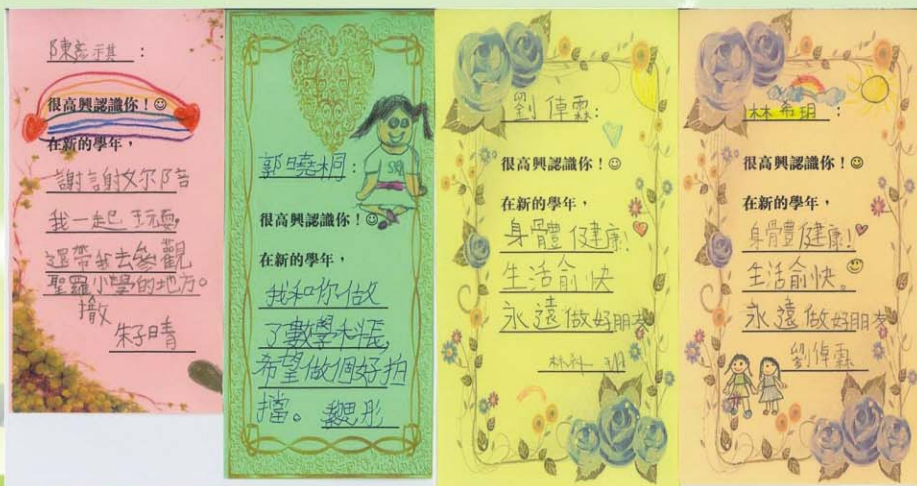 陳彥祺：
很高興認識你！☺
在新的學年，
謝謝你陪
我一起玩耍，
還帶我去參觀
聖羅小學的地方。
撒
朱子晴
郭曉桐：
很高興認識你！☺
在新的學年，
我和你做
了數學科長，
希望做個好拍
擋。 魏思彤
劉倬霖：
很高興認識你！☺
在新的學年，
身體健康！
生活愉快
永遠做好朋友
林希玥
林希玥：
很高興認識你！☺
在新的學年，
身體健康！
生活愉快。
永遠做好朋友
劉倬霖